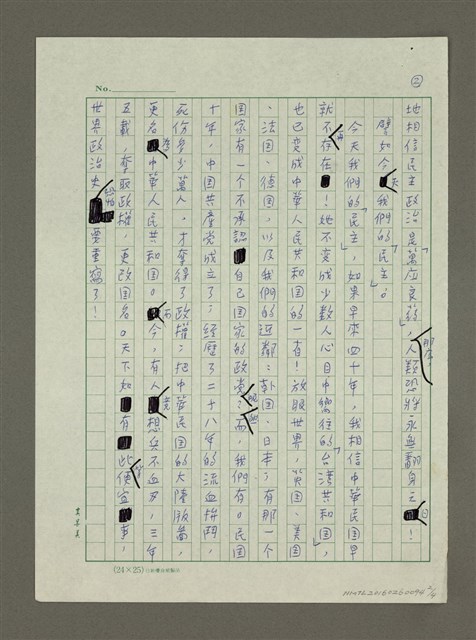 No.
②
地相信民主政治是「萬应灵药」，那麼，人類恐將永無翻身之日！
譬如今天「我們的民主」。
今天我們的「民主」，如果早來四十年，我相信中華民国早
就不存在！她不变成少数人心目中嚮往的「台湾共和国」，
也已变成中華人民共和国的一省！放眼世界，英国、美国
、法国、德国，以及我們的近鄰：韩国、日本；有那一个
国家有一个不承認自己国家的政党？然而，我們有。民国
十年，中国共產党成立了；經歷了二十八年的流血拚鬥，
死伤多少萬人，才奪得了政權；把中華民国的大陸版圖，
更名為中華人民共和国。而今，有人竟想兵不血刃，三年
五載，奪取政權，更改国名。天下如有此便宜事，
世界政治史恐怕要重寫了！
(24×25)
NMTL20160260094 2/4